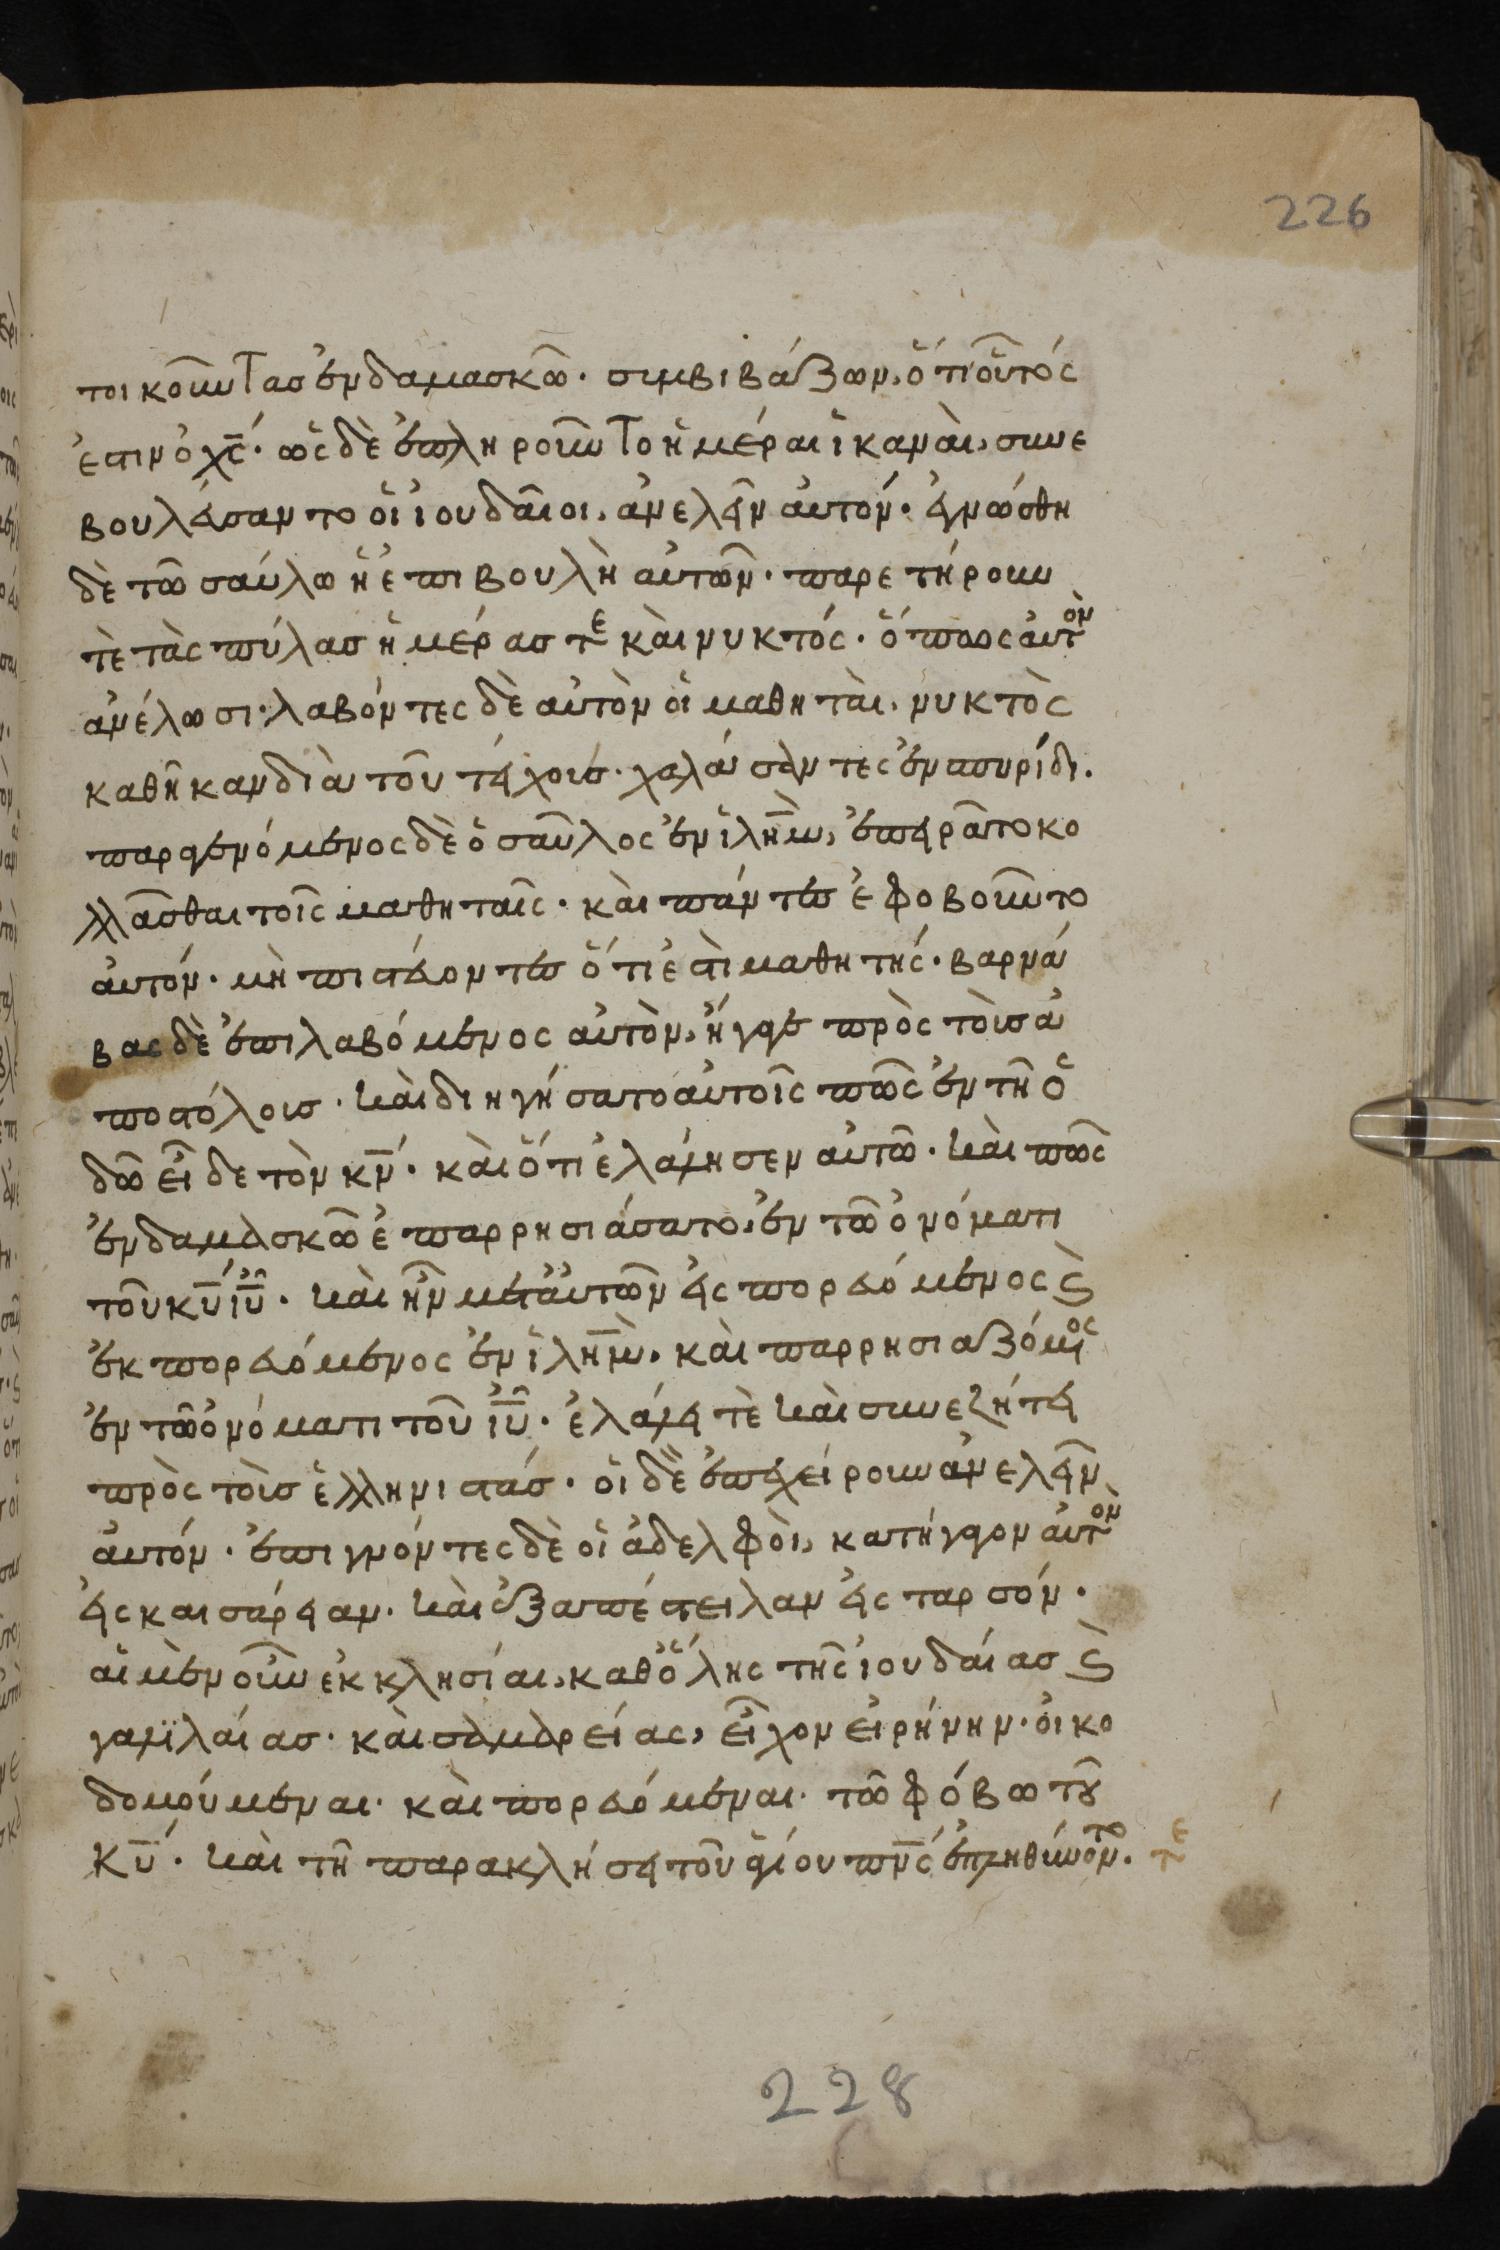 226
τοικοῦντας ἐν δαμασκῶ· συμβιβάζων, ὅτι οὗτός
ἐστιν ὁ χς· ὡς δὲ ἐπληροῦντο ἡμέραι ἱκαναὶ, συνε
βουλεύσαντο οἱ ἰουδαῖοι, ἀνελεῖν αὐτόν· ἐγνώσθη
δὲ τῶ σαύλω ἡ ἐπιβουλὴ αὐτῶν· παρετήρουν
τὲ τὰς πύλας ἡμέρας τε καὶ νυκτός· ὅπως αὐτὸν
ἀνέλωσι· λαβόντες δὲ αὐτὸν οἱ μαθηταὶ, νυκτὸς
καθῆκαν διὰ τοῦ τείχους· χαλάσαντες ἐν σπυρίδι.
παραγενόμενος δὲ ὁ σαῦλος ἐν ἱλημ, ἐπειρᾶτο κο
λλᾶσθαι τοῖς μαθηταῖς· καὶ πάντες ἐφοβοῦντο
αὐτόν· μὴ πιστεύοντες ὅτι ἐστὶ μαθητής· βαρνά
βας δὲ ἐπιλαβόμενος αὐτὸν, ἤγαγε πρὸς τοὺς ἀ
ποστόλους· καὶ διηγήσατο αὐτοῖς πῶς ἐν τῆ ὁ
δῶ εἶδε τὸν κν· καὶ ὅτι ἐλάλησεν αὐτῶ· καὶ πῶς
ἐν δαμασκῶ ἐπαρρησιάσατο, ἐν τῶ ὀνόματι
τοῦ κυ ιυ· καὶ ἦν μετ' αὐτῶν εἰσπορευόμενος ϗ
ἐκπορευόμενος ἐν ἱλημ· καὶ παρρησιαζόμενος
ἐν τῶ ὀνόματι τοῦ ιυ· ἐλάλει τὲ καὶ συνεζήτει
πρὸς τοὺς ἑλληνιστάς· οἱ δὲ ἐπεχείρουν ἀνελεῖν
αὐτόν· ἐπιγνόντες δὲ οἱ ἀδελφοὶ, κατήγαγον αὐτὸν
εἰς καισάρειαν· καὶ ἐξαπέστειλαν εἰς ταρσόν·
αἱ μὲν οὖν ἐκκλησίαι, καθ' ὅλης τῆς ἰουδαίας ϗ
γαλιλαίας· καὶ σαμαρείας, εἶχον εἰρήνην· οἰκο
δομούμεναι· καὶ πορευόμεναι· τῶ φόβω τοῦ
κυ· καὶ τῆ παρακλήσει τοῦ ἁγίου πνς ἐπληθύνοντο. τε
228